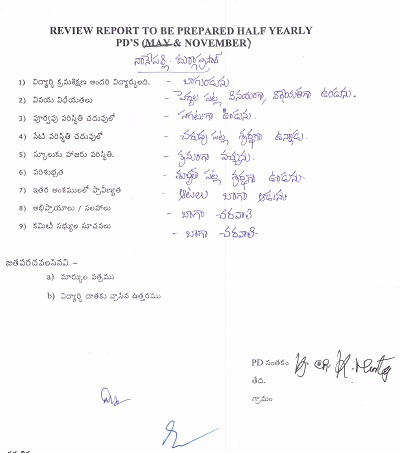 REVIEW REPORT TO BE PREPARED HALF YEARLY
PD'S (MAY & NOVEMBER)
1) విద్యార్థి క్రమశిక్షణ అందరి విద్యార్థులది. - బాగుండును
2) వినయ విధేయతలు - పెద్దల పట్ల వినయంగా, ఉండును.
3) పూర్వపు పరిస్థితి చదువులో - ఉండును.
4) నేటి పరిస్థితి చదువులో - చదువు పట్ల శ్రద్ధగా ఉన్నాడు.
5) స్కూలుకు హాజరు పరిస్థితి. - క్రమంగా వచ్చును.
6) పరిశుభ్రత - శుభ్రత పట్ల శ్రద్ధగా ఉండును.
7) ఇతర అంశములలో ప్రావీణ్యత - ఆటలు బాగా ఆడును.
8) అభిప్రాయాలు / సలహాలు - బాగా చదవాలి
9) కమిటీ సభ్యుల సూచనలు - బాగా చదవాలి.
జతపరచవలసినవి –
a) మార్కుల పత్రము
b) విద్యార్థి దాతకు వ్రాసిన ఉత్తరము
PD సంతకం
తేది.
గ్రామం